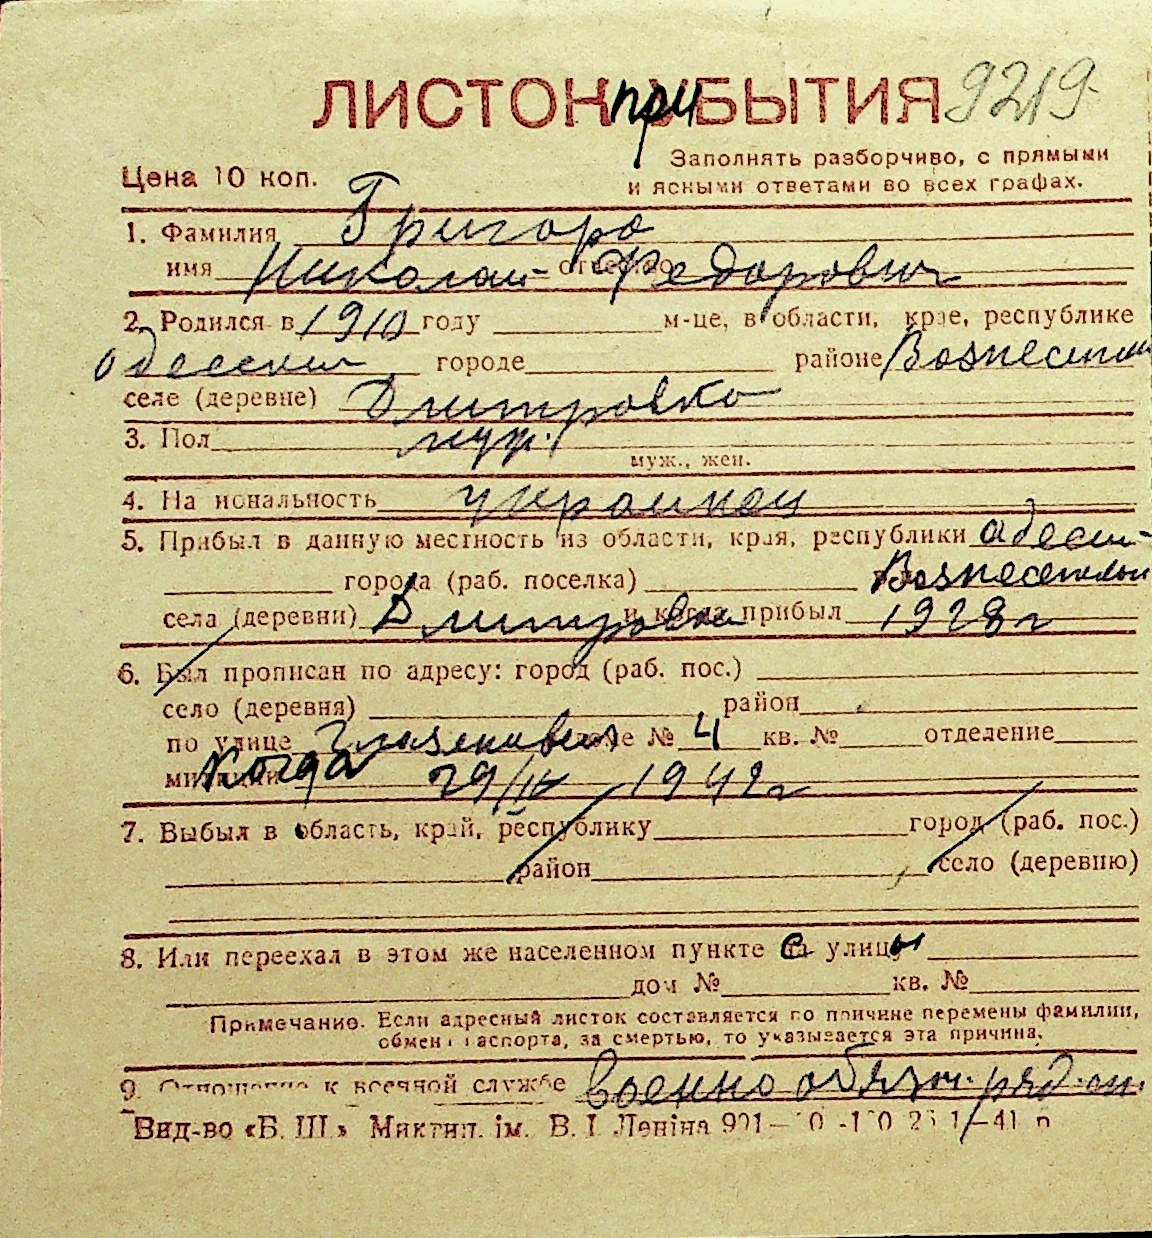 ЛИСТОК ПРИБЫТИЯ 9219
Заполнять разборчиво, с прямыми
Цена 10 коп. и ясными ответами во всех графах.
1. Фамилия Григора
имя Николай отчество Федорович
2. Родился в 1910 году м-це, в области, крае, республике
одесская городе районе Вознесенск
селе (деревне) Дмитровка
3. Пол муж.
муж., жен.
4. Национальность украинец
5. Прибыл в данную местность из области, края, республики одесск
города (раб. поселка) Вознесенский
села (деревни) Дмитровка и когда прибыл 1928 г
6. Был прописан по адресу: город (раб. пос.)
село (деревня) район
по улице № 4 кв. № отделение
милиции когда 29/IV 1942 г
7. Выбыл в область, край, республику город (раб. пос.)
район село (деревню)
8. Или переехал в этом же населенном пункте с улицы
дом № кв. №
Примечание. Если адресный листок составляется по причине перемены фамилии,
обмена паспорта, за смертью, то указывается эта причина.
9. Отношение к военной службе военно обязан. ряд.
Вид-во «Б. Ш.» Миктип. ім. В. І. Леніна